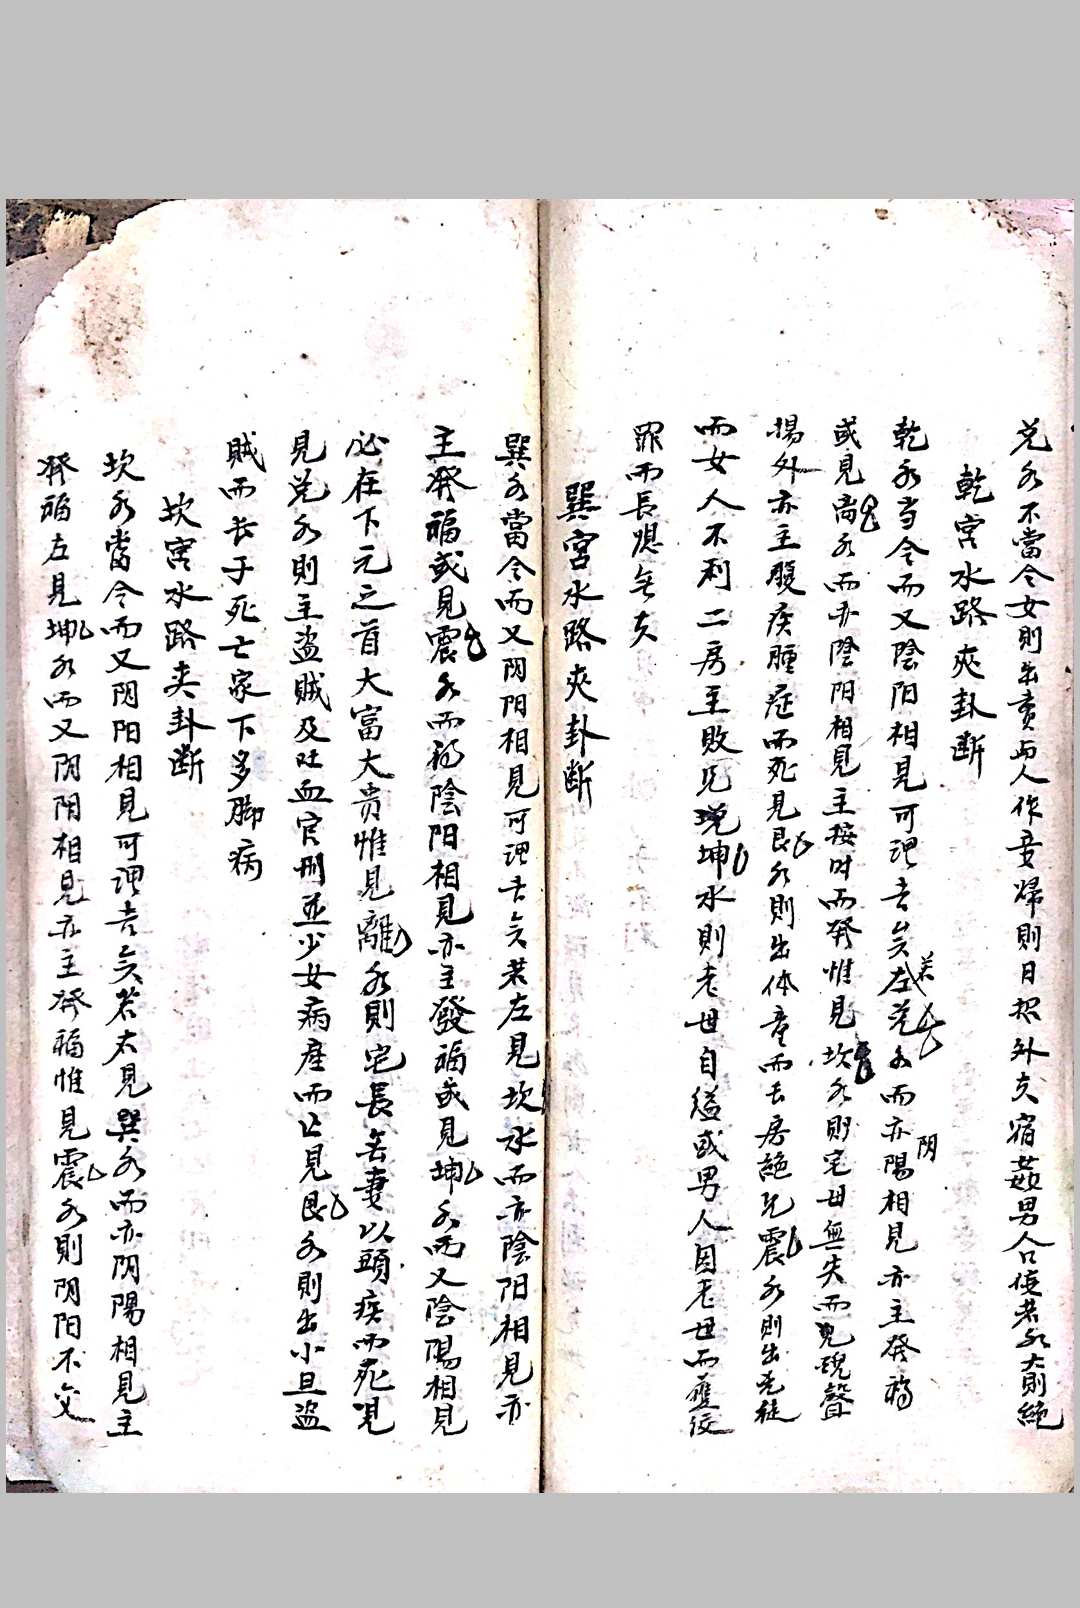 兑水不當令女則出賣与人作妾婦則日招外夫宿姦男人口使若水大則絕
乾宮水路夾卦断
乾水当令而又陰阳相見可謂吉矣若左兑水而亦阴陽相見亦主發福
或見离水而亦陰阳相見主按时而發惟見坎水則宅母無失而見聲
揚外亦主腹疾腫症而死見艮水則出体童而長房絕見震水則出兇徒
而女人不利二房主敗見坤水則老母自縊或男人因老母而
罪而長媳無夫
巽宮水路夾卦断
巽水當令而又阴阳相見可謂吉矣若左見坎水而亦陰阳相見亦
主發福或見震水而得陰阳相見亦主發福或見坤水而又陰陽相見
必在下元之首大富大贵惟見離水則宅長無妻以頭疾而死見
見兑水則主盜賊及吐血官刑並少女病產而亡見艮水則出小旦盜
賊而長子死亡家下多脚病
坎宮水路夹卦断
坎水當令而又阴阳相見可謂吉矣若右見巽水而亦阴陽相見主
發福左見坤水而又阴阳相見亦主發福惟見震水則阴阳不交